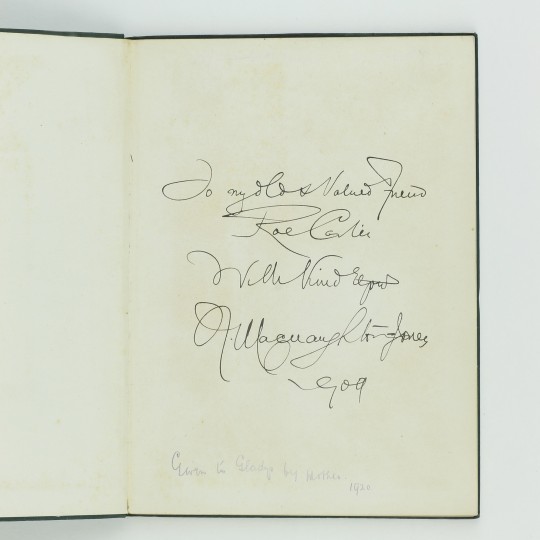 To my old & Valued Friend
Roe
With Kind
H. Macnaughton-Jones
1909
Given to Gladys by Mother
1920